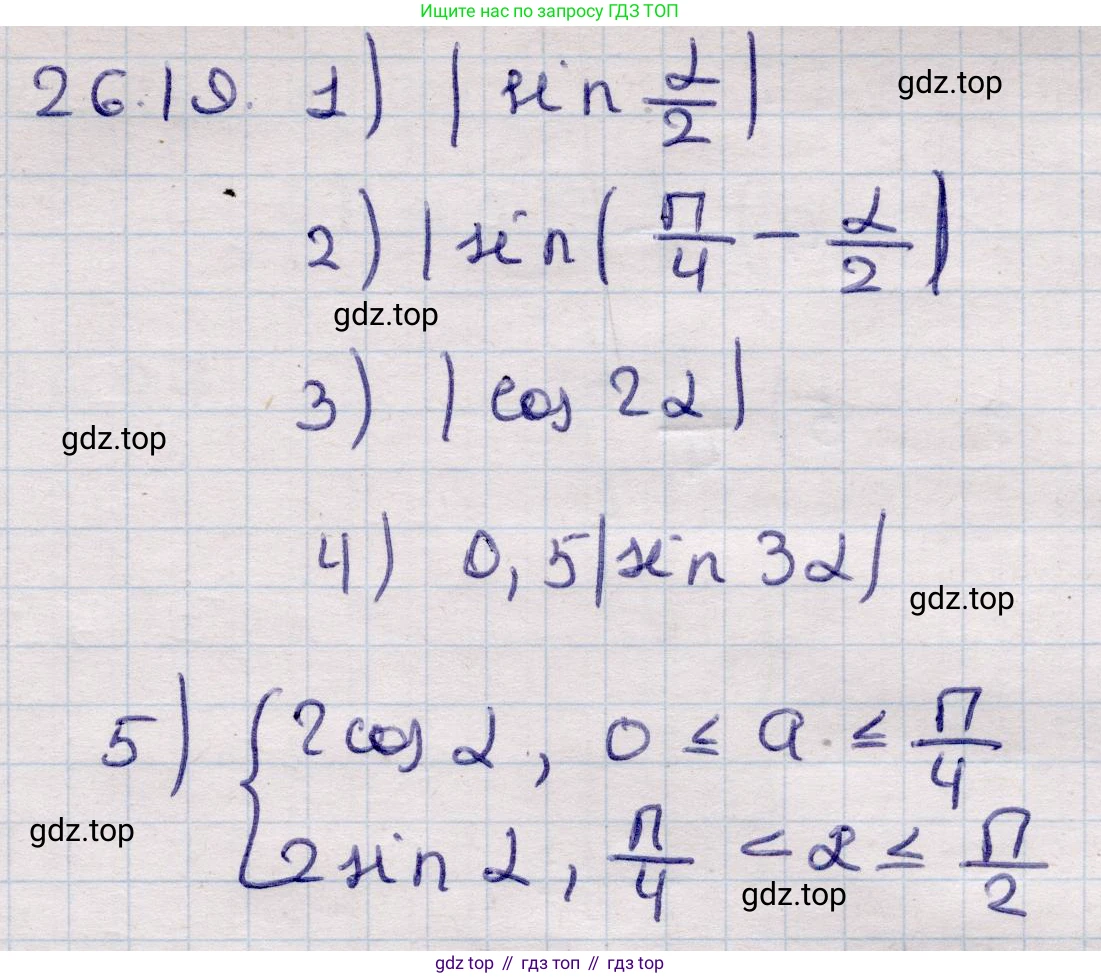 Ищите нас по запросу ГДЗ ТОП
26.19. 1) |sin α/2|
gdz.top
2) |sin(π/4 - α/2|
gdz.top
3) |cos 2α|
gdz.top
4) 0,5|sin 3α|
gdz.top
5) { 2cos α, 0 ≤ a ≤ π/4
gdz.top
2sin α, π/4 < α ≤ π/2
gdz.top
gdz top // гдз топ // gdz top